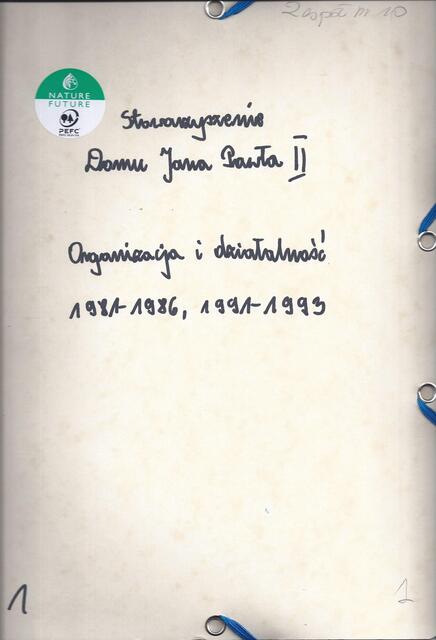 Zespół nr 10
NATURE
FUTURE
PEFC
Stowarzyszenie
Domu Jana Pawła II
Organizacja i działalność
1981-1986, 1991-1993
1
1